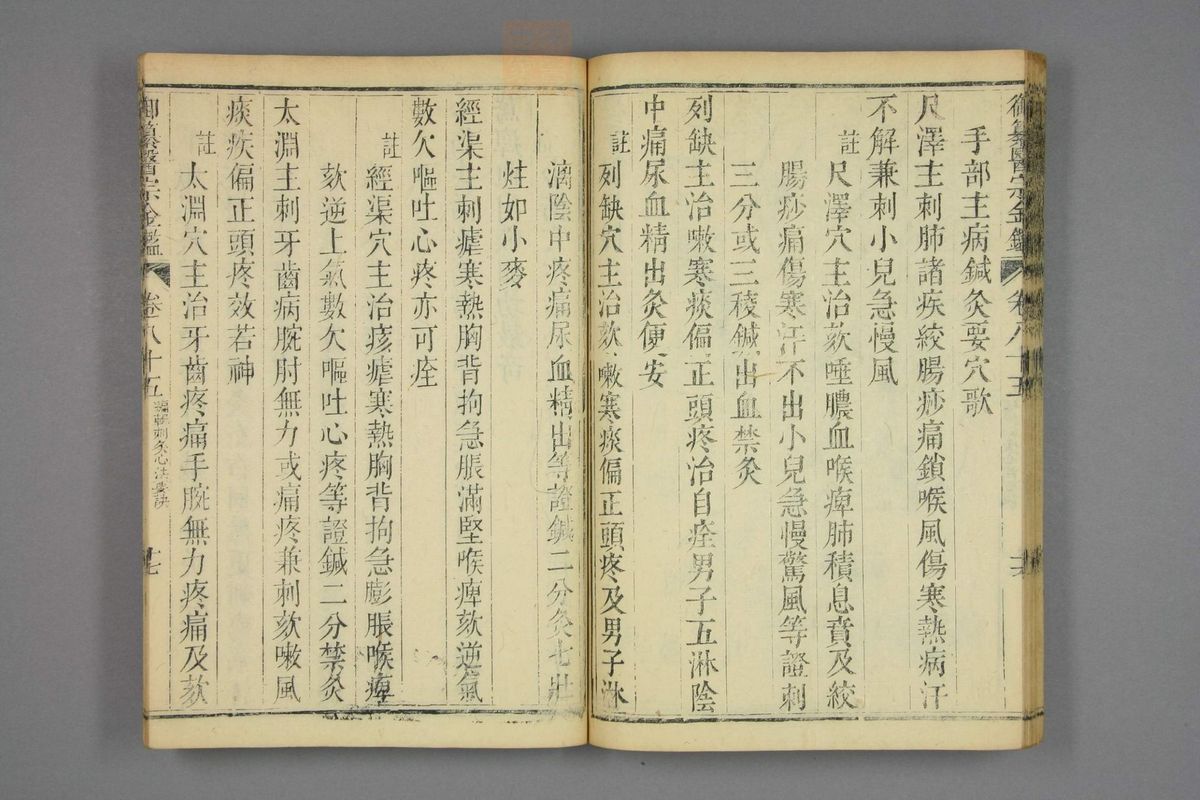 御纂醫宗金鑑 卷八十五
手部主病鍼灸要穴歌
尺澤主刺肺諸疾絞腸痧痛鎖喉風傷寒熱病汗
不解兼刺小兒急慢風
註尺澤穴主治欬唾膿血喉痺肺積息賁及絞
腸痧痛傷寒汗不出小兒急慢驚風等證刺
三分或三稜鍼出血禁灸
列缺主治嗽寒痰偏正頭疼治自痊男子五淋陰
中痛尿血精出灸便安
註列缺穴主治欬嗽寒痰偏正頭疼及男子淋
瀝陰中疼痛尿血精出等證鍼二分灸七壯
炷如小麥
經渠主刺瘧寒熱胸背拘急脹滿堅喉痺欬逆氣
數欠嘔吐心疼亦可痊
註經渠穴主治痎瘧寒熱胸背拘急膨脹喉痺
欬逆上氣數欠嘔吐心疼等證鍼二分禁灸
太淵主刺牙齒病腕肘無力或痛疼兼刺欬嗽風
痰疾偏正頭疼效若神
註太淵穴主治牙齒疼痛手腕無力疼痛及欬
御纂醫宗金鑑 卷八十五 編輯刺灸心法要訣 七